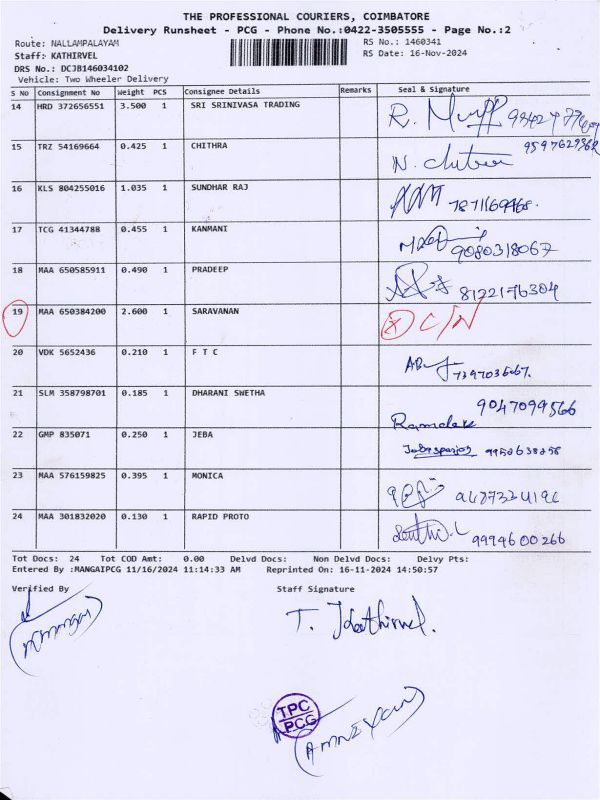 THE PROFESSIONAL COURIERS, COIMBATORE
Delivery Runsheet - PCG - Phone No.:0422-3505555 - Page No.:2
Route: NALLAMPALAYAM RS No.: 1460341
Staff: KATHIRVEL RS Date: 16-Nov-2024
DRS No.: DCJB146034102
Vehicle: Two Wheeler Delivery
S No Consignment No Weight PCS Consignee Details Remarks Seal & Signature
14 HRD 372656551 3.500 1 SRI SRINIVASA TRADING R.
15 TRZ 54169664 0.425 1 CHITHRA N. Chitra
16 KLS 804255016 1.035 1 SUNDHAR RAJ
17 TCG 41344788 0.455 1 KANMANI 9080318067
18 MAA 650585911 0.490 1 PRADEEP 8122176304
19 MAA 650384200 2.600 1 SARAVANAN C/N
20 VDK 5652436 0.210 1 F T C
21 SLM 358798701 0.185 1 DHARANI SWETHA 9047099566
22 GMP 835071 0.250 1 JEBA
23 MAA 576159825 0.395 1 MONICA
24 MAA 301832020 0.130 1 RAPID PROTO 9994600266
Tot Docs: 24 Tot COD Amt: 0.00 Delvd Docs: Non Delvd Docs: Delvy Pts:
Entered By :MANGAIPCG 11/16/2024 11:14:33 AM Reprinted On: 16-11-2024 14:50:57
Verified By Staff Signature
T. Kathirvel.
TPC
PCG